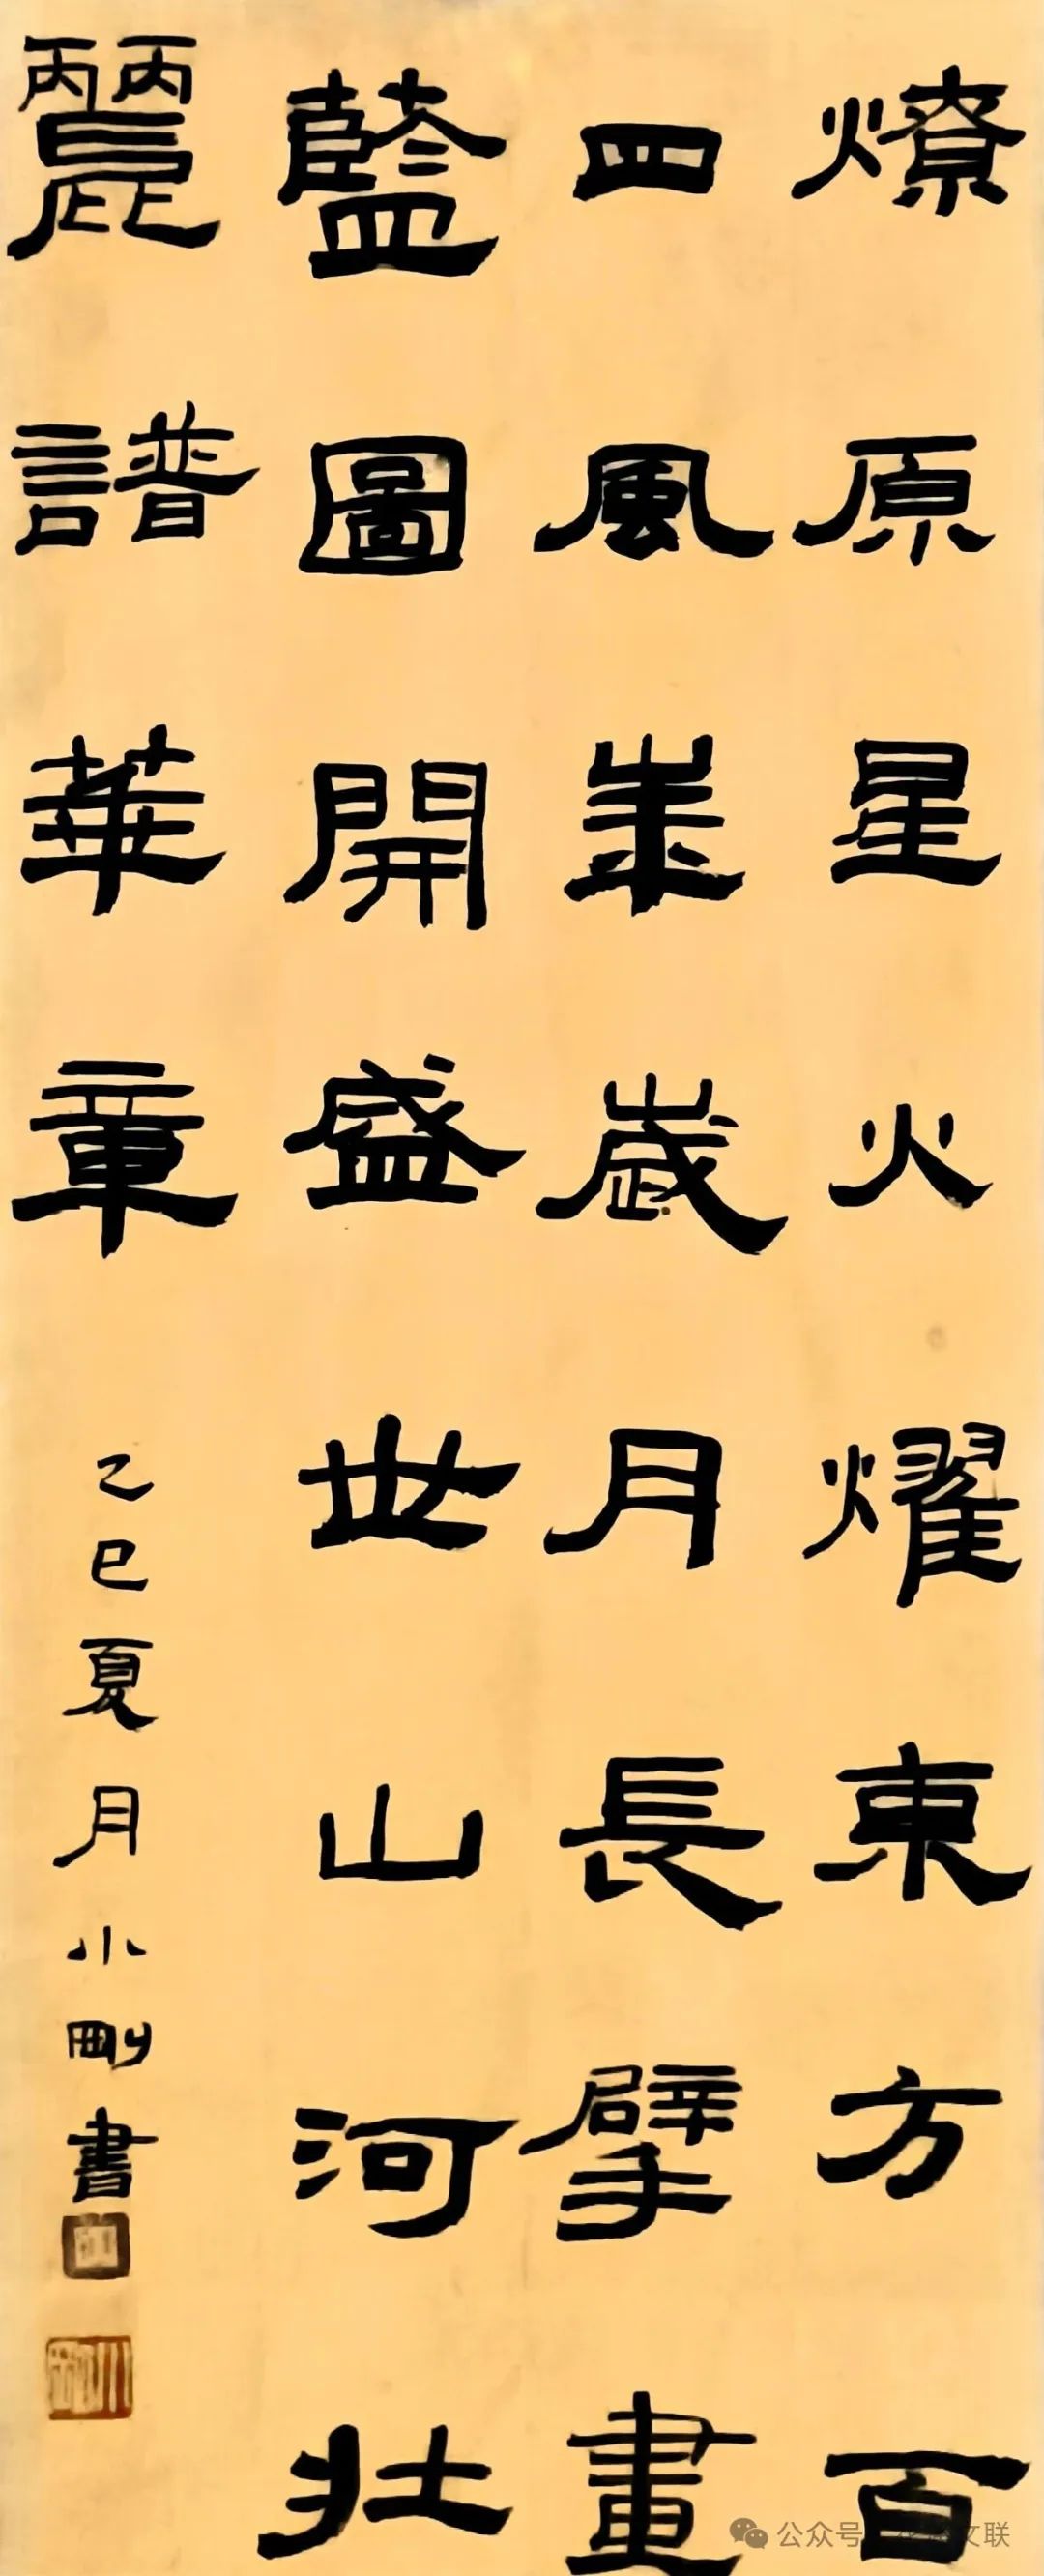 燎原星火耀東方百
四風業歲月長擘畫
藍圖開盛世山河壯
麗譜華章
乙巳夏月小剛書
公众号 文联